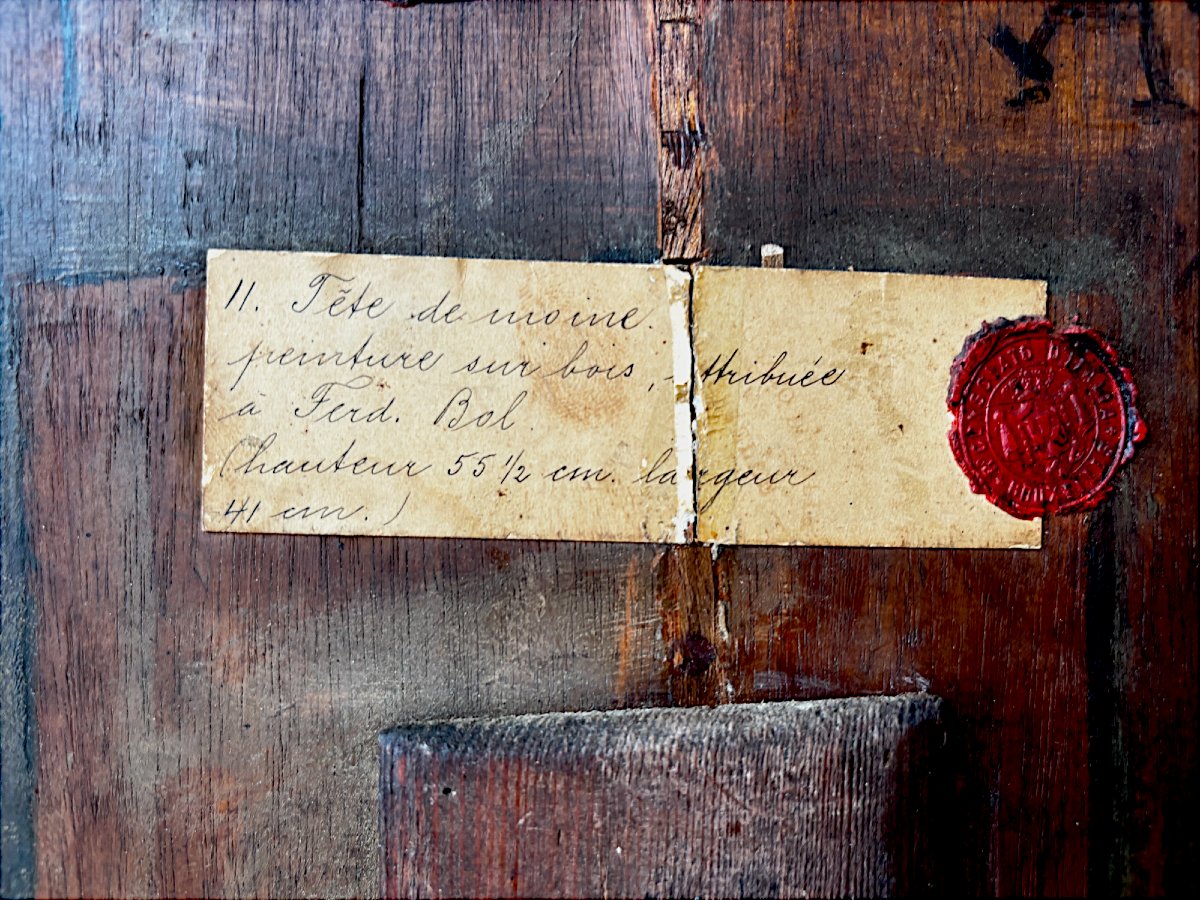 11. Tête de moine.
peinture sur bois, attribuée
à Ferd. Bol.
(hauteur 55 ½ cm. largeur
41 cm.)